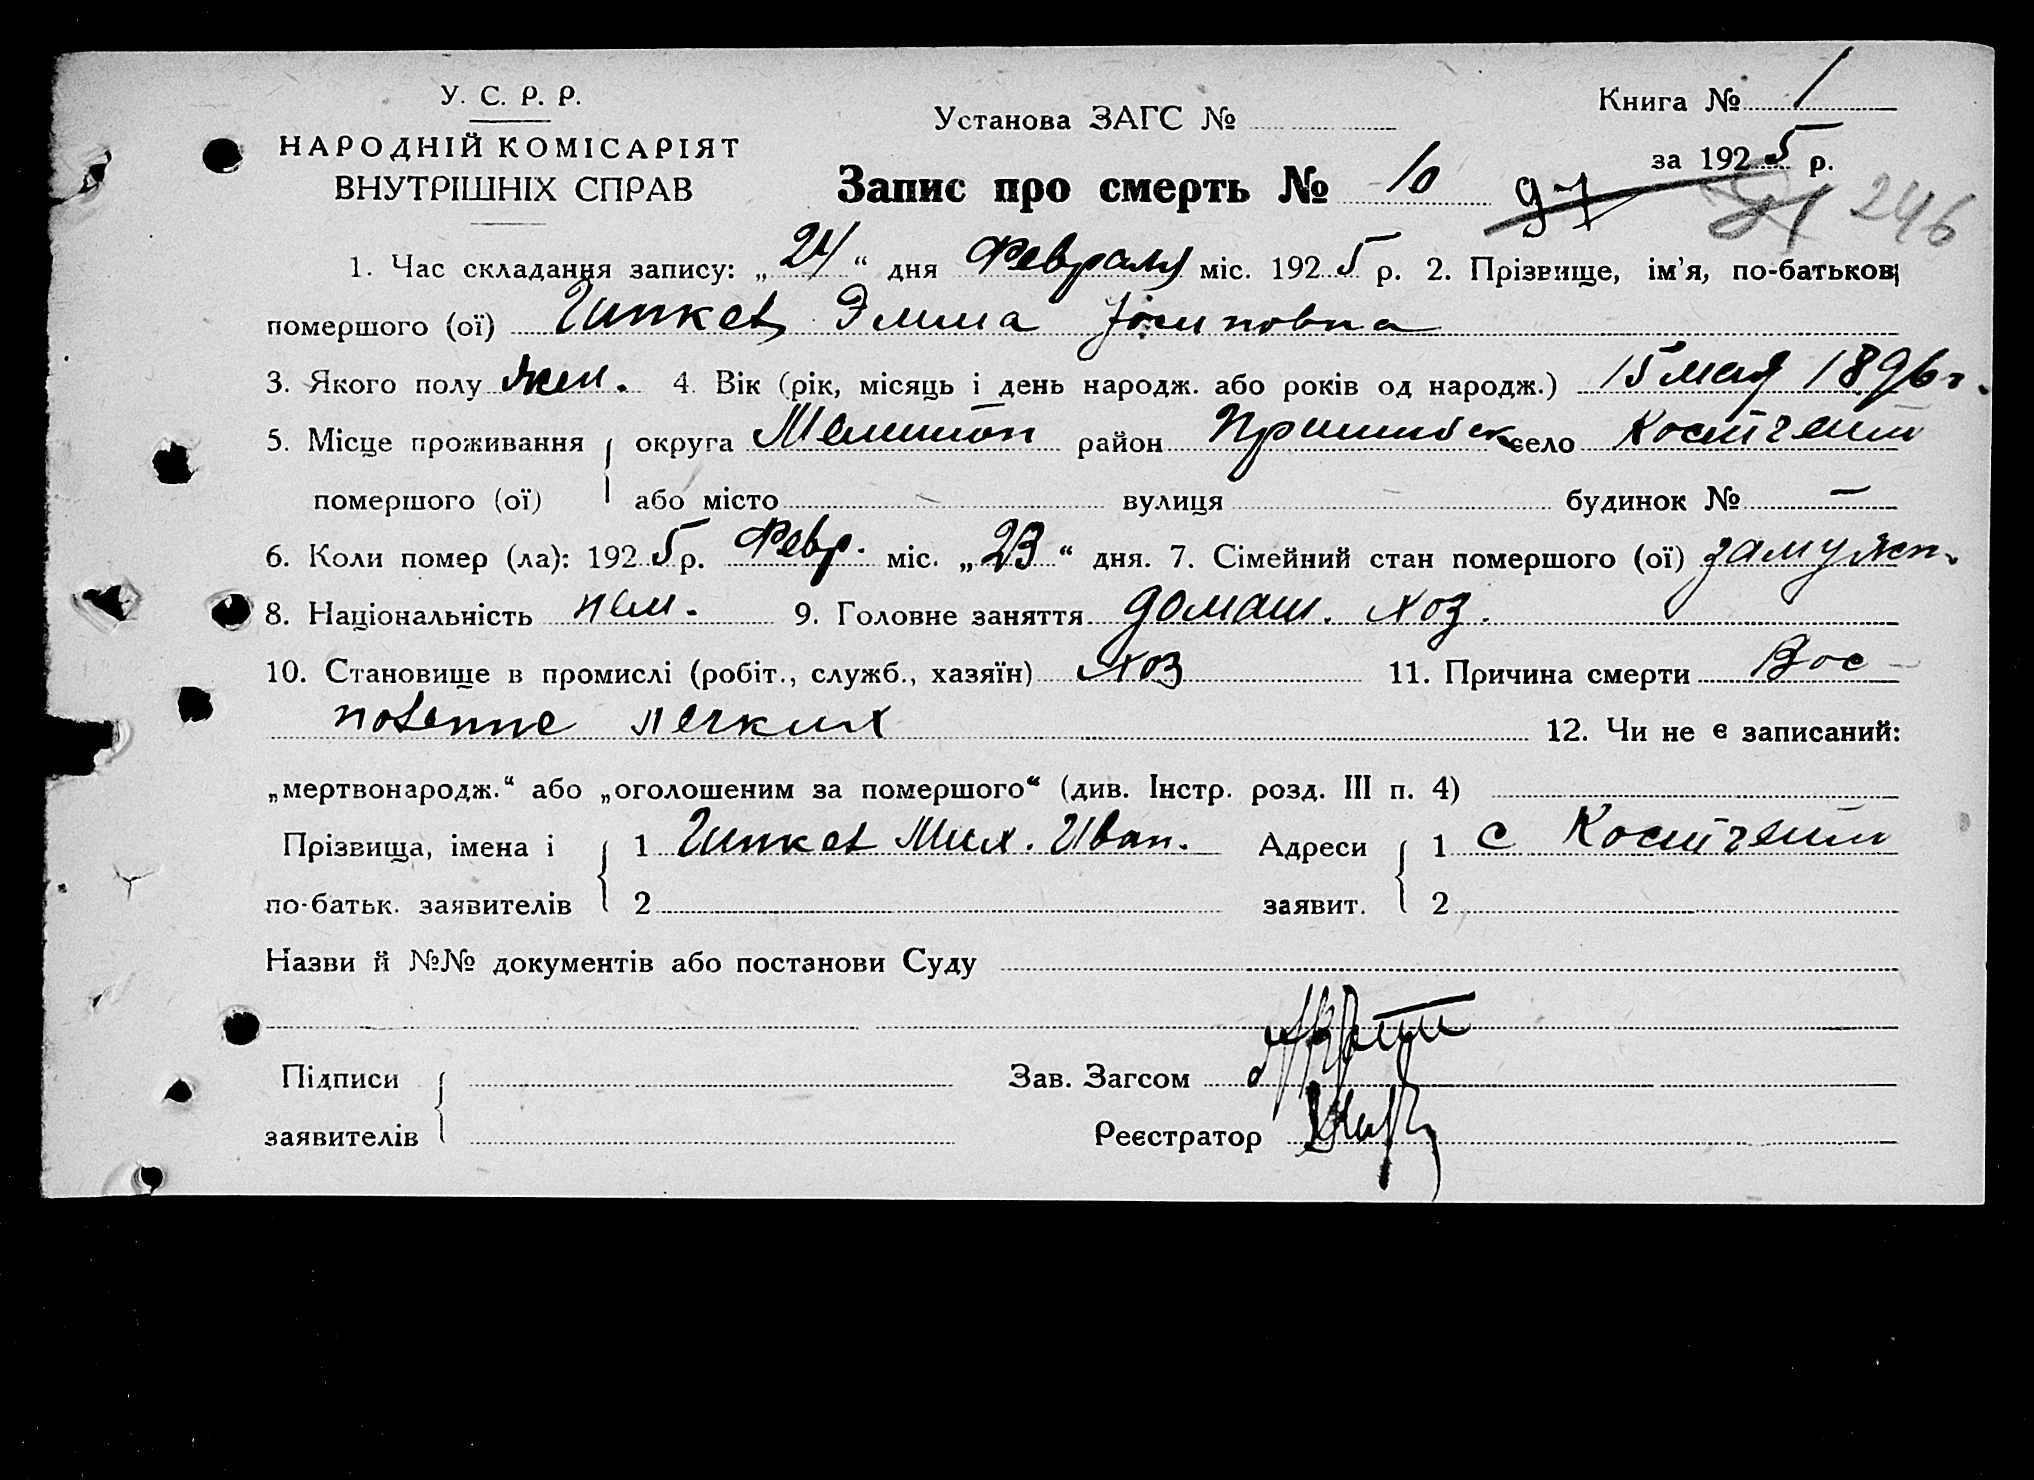 У. С. Р. Р.
НАРОДНІЙ КОМІСАРІЯТ
ВНУТРІШНІХ СПРАВ
Установа ЗАГС №
Книга № 1
за 1925 р.
Запис про смерть № 10 97 246
1. Час складання запису: „24“ дня Февраля міс. 1925 р. 2. Прізвище, ім'я, по-батькові
помершого (ої) Гипкев Эмма Іосиповна
3. Якого полу жен. 4. Вік (рік, місяць і день народж. або років од народж.) 15 мая 1896 г.
5. Місце проживання округа Мелитоп район Пришибск село Костгейм
помершого (ої) або місто вулиця будинок № —
6. Коли помер (ла): 1925 р. Февр. міс. „23“ дня. 7. Сімейний стан помершого (ої) замужн.
8. Національність нем. 9. Головне заняття домаш. хоз.
10. Становище в промислі (робіт., служб., хазяїн) хоз 11. Причина смерти Вос-
поление легких 12. Чи не є записаний:
„мертвонародж.“ або „оголошеним за помершого“ (див. Інстр. розд. III п. 4)
Прізвища, імена і 1 Гипкев Мих. Иван. Адреси 1 с Костгейм
по-батьк. заявителів 2 заявит. 2
Назви й №№ документів або постанови Суду
Підписи Зав. Загсом
заявителів Реєстратор